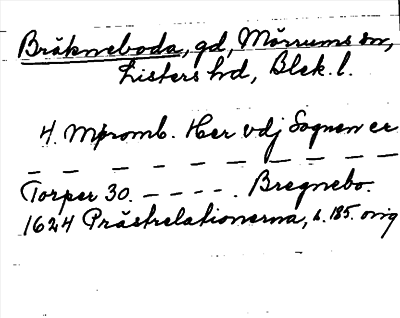 Bräkneboda, gd, Mörrums sn,
Listers hd, Blek. l.
4. Mpromb. Her vdj Sognen er
— — — — — — — — —
Torper 30. - - - - . Bregnebo.
1624 Prästrelationerna, s. 185. orig